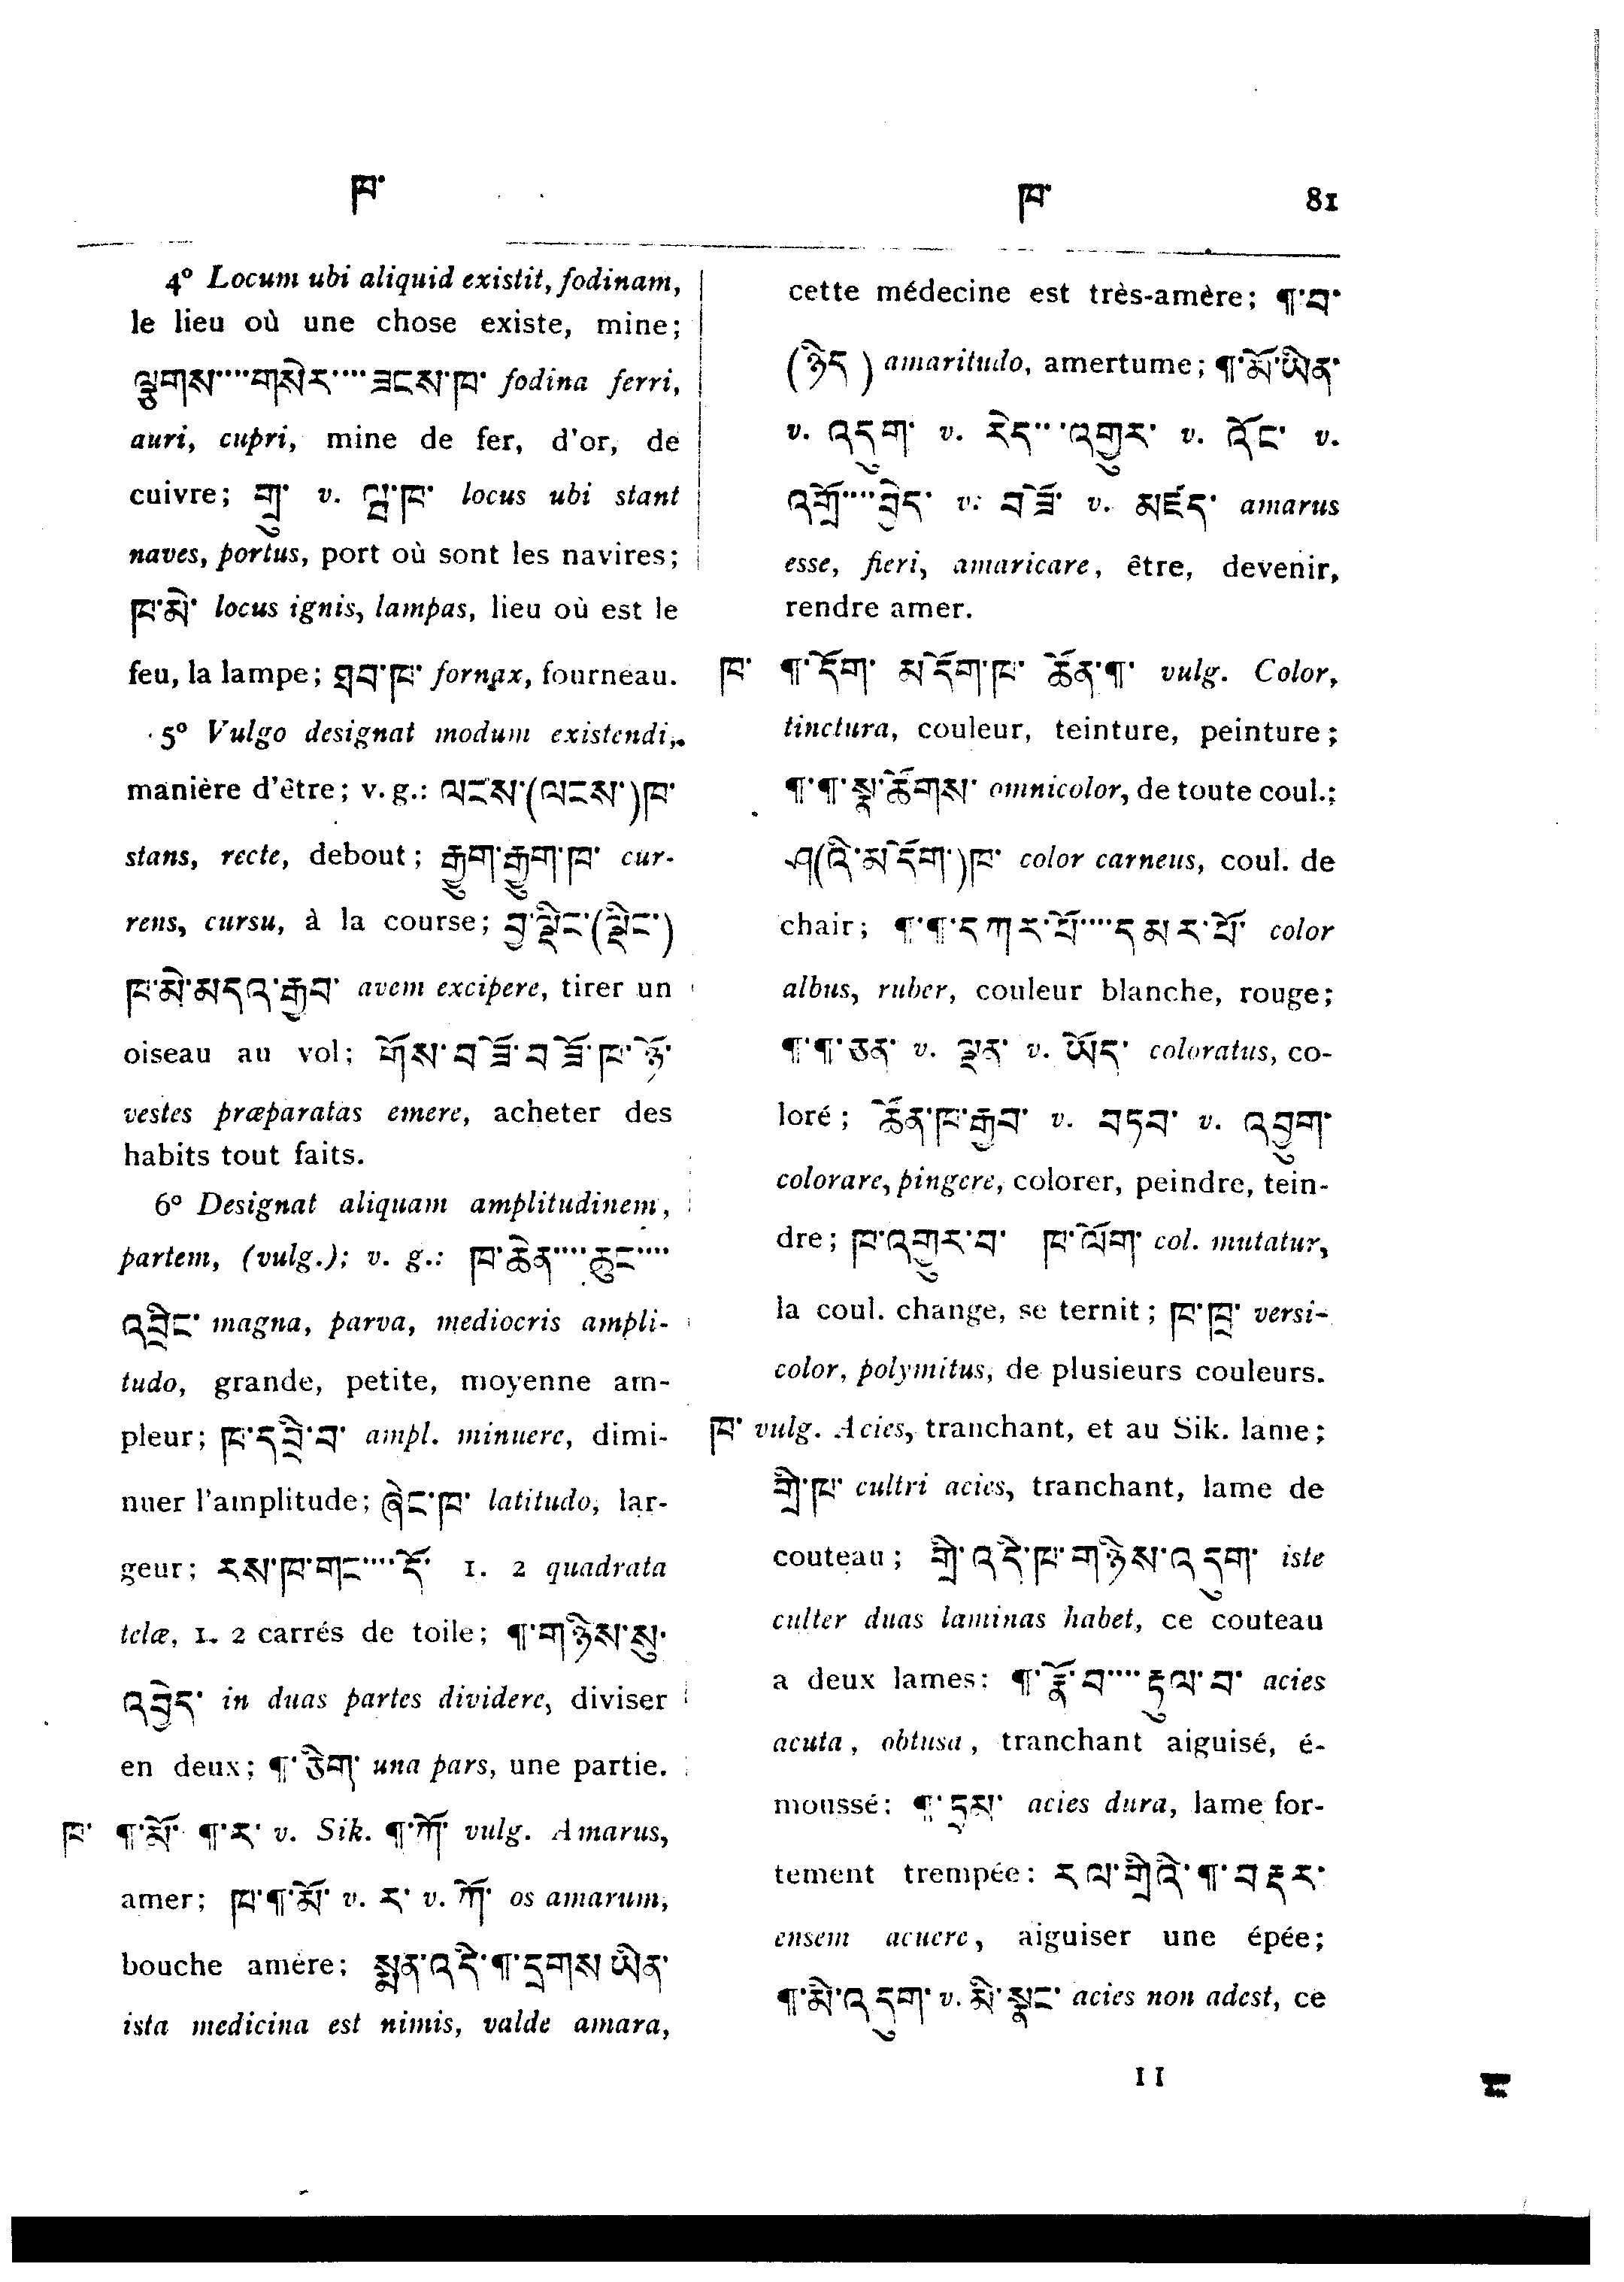 ཁ་
ཁ་ 81
4º Locum ubi aliquid existit, fodinam,
le lieu où une chose existe, mine;
ལྕགས་···གསེར་···ཟངས་ཁ་ fodina ferri,
auri, cupri, mine de fer, d'or, de
cuivre; གྲུ་ v. ཁ་ locus ubi stant
naves, portus, port où sont les navires;
ཁ་མེ་ locus ignis, lampas, lieu où est le
feu, la lampe; ཐབ་ཁ་ fornax, fourneau.
5º Vulgo designat modum existendi,
manière d'être; v. g.: ལངས་(ལངས་)ཁ་
stans, recte, debout; རྒྱུག་རྒྱུག་ཁ་ cur-
rens, cursu, à la course; བྱ་ལྡིང་(ལྡིང་)
ཁ་མེ་མདའ་རྒྱབ་ avem excipere, tirer un
oiseau au vol; གོས་བཟོ་བཟོ་ཁ་ཉོ་
vestes præparatas emere, acheter des
habits tout faits.
6º Designat aliquam amplitudinem,
partem, (vulg.); v. g.: ཁ་ཆེན་···ཆུང་···
འབྲིང་ magna, parva, mediocris ampli-
tudo, grande, petite, moyenne am-
pleur; ཁ་དབྲི་བ་ ampl. minuere, dimi-
nuer l'amplitude; ཞེང་ཁ་ latitudo, lar-
geur; རས་ཁ་གང་···དོ་ 1. 2 quadrata
telæ, 1. 2 carrés de toile; ཁ་གཉིས་སུ་
འབྱེད་ in duas partes dividere, diviser
en deux; ཁ་ཅིག་ una pars, une partie.
ཁ་ ཁ་མོ་ ཁ་ར་ v. Sik. ཁ་ཀོ་ vulg. Amarus,
amer; ཁ་ཁ་མོ་ v. ར་ v. ཀོ་ os amarum,
bouche amère; སྨན་འདི་ཁ་དྲགས་ཡིན་
ista medicina est nimis, valde amara,
cette médecine est très-amère; ཁ་བ་
(ཉིད) amaritudo, amertume; ཁ་མོ་ཡིན་
v. འདུག་ v. རེད་···འགྱུར་ v. འོང་ v.
འགྲོ་···བྱེད་ v. བཟོ་ v. མཛད་ amarus
esse, fieri, amaricare, être, devenir,
rendre amer.
ཁ་ ཁ་དོག་ མདོག་ཁ་ ཚོན་ཁ་ vulg. Color,
tinctura, couleur, teinture, peinture;
ཁ་ཁ་སྣ་ཚོགས་ omnicolor, de toute coul.;
ཤ(འི་མདོག་)ཁ་ color carneus, coul. de
chair; ཁ་ཁ་དཀར་པོ་···དམར་པོ་ color
albus, ruber, couleur blanche, rouge;
ཁ་ཁ་ཅན་ v. ལྡན་ v. ཡོད་ coloratus, co-
loré; ཚོན་ཁ་རྒྱབ་ v. བཏབ་ v. འབྱུག་
colorare, pingere, colorer, peindre, tein-
dre; ཁ་འགྱུར་བ་ ཁ་ལོག་ col. mutatur,
la coul. change, se ternit; ཁ་ཁྲ་ versi-
color, polymitus, de plusieurs couleurs.
ཁ་ vulg. Acies, tranchant, et au Sik. lame;
གྲི་ཁ་ cultri acies, tranchant, lame de
couteau; གྲི་འདི་ཁ་གཉིས་འདུག་ iste
culter duas laminas habet, ce couteau
a deux lames: ཁ་རྣོ་བ་···རྟུལ་བ་ acies
acuta, obtusa, tranchant aiguisé, é-
moussé: ཁ་ acies dura, lame for-
tement trempée: རལ་གྲིའི་ཁ་བརྡར་
ensem acuere, aiguiser une épée;
ཁ་མི་འདུག་ v. མི་སྣང་ acies non adest, ce
11